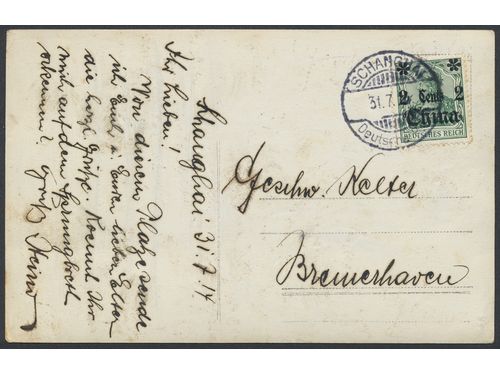 Shanghai 31/7 14
Ihr Lieben!
Von diesem Platze sende
ich Euch u. Euren lieben Eltern
die herzl. Grüße. Könnt Ihr
mich auf dem Sprungbrett
erkennen? Gruß Heino
SCHANGHAI
31.7
Deutsche
2 Cent 2
China
DEUTSCHES REICH
Geschw. Kelter
Bremerhaven